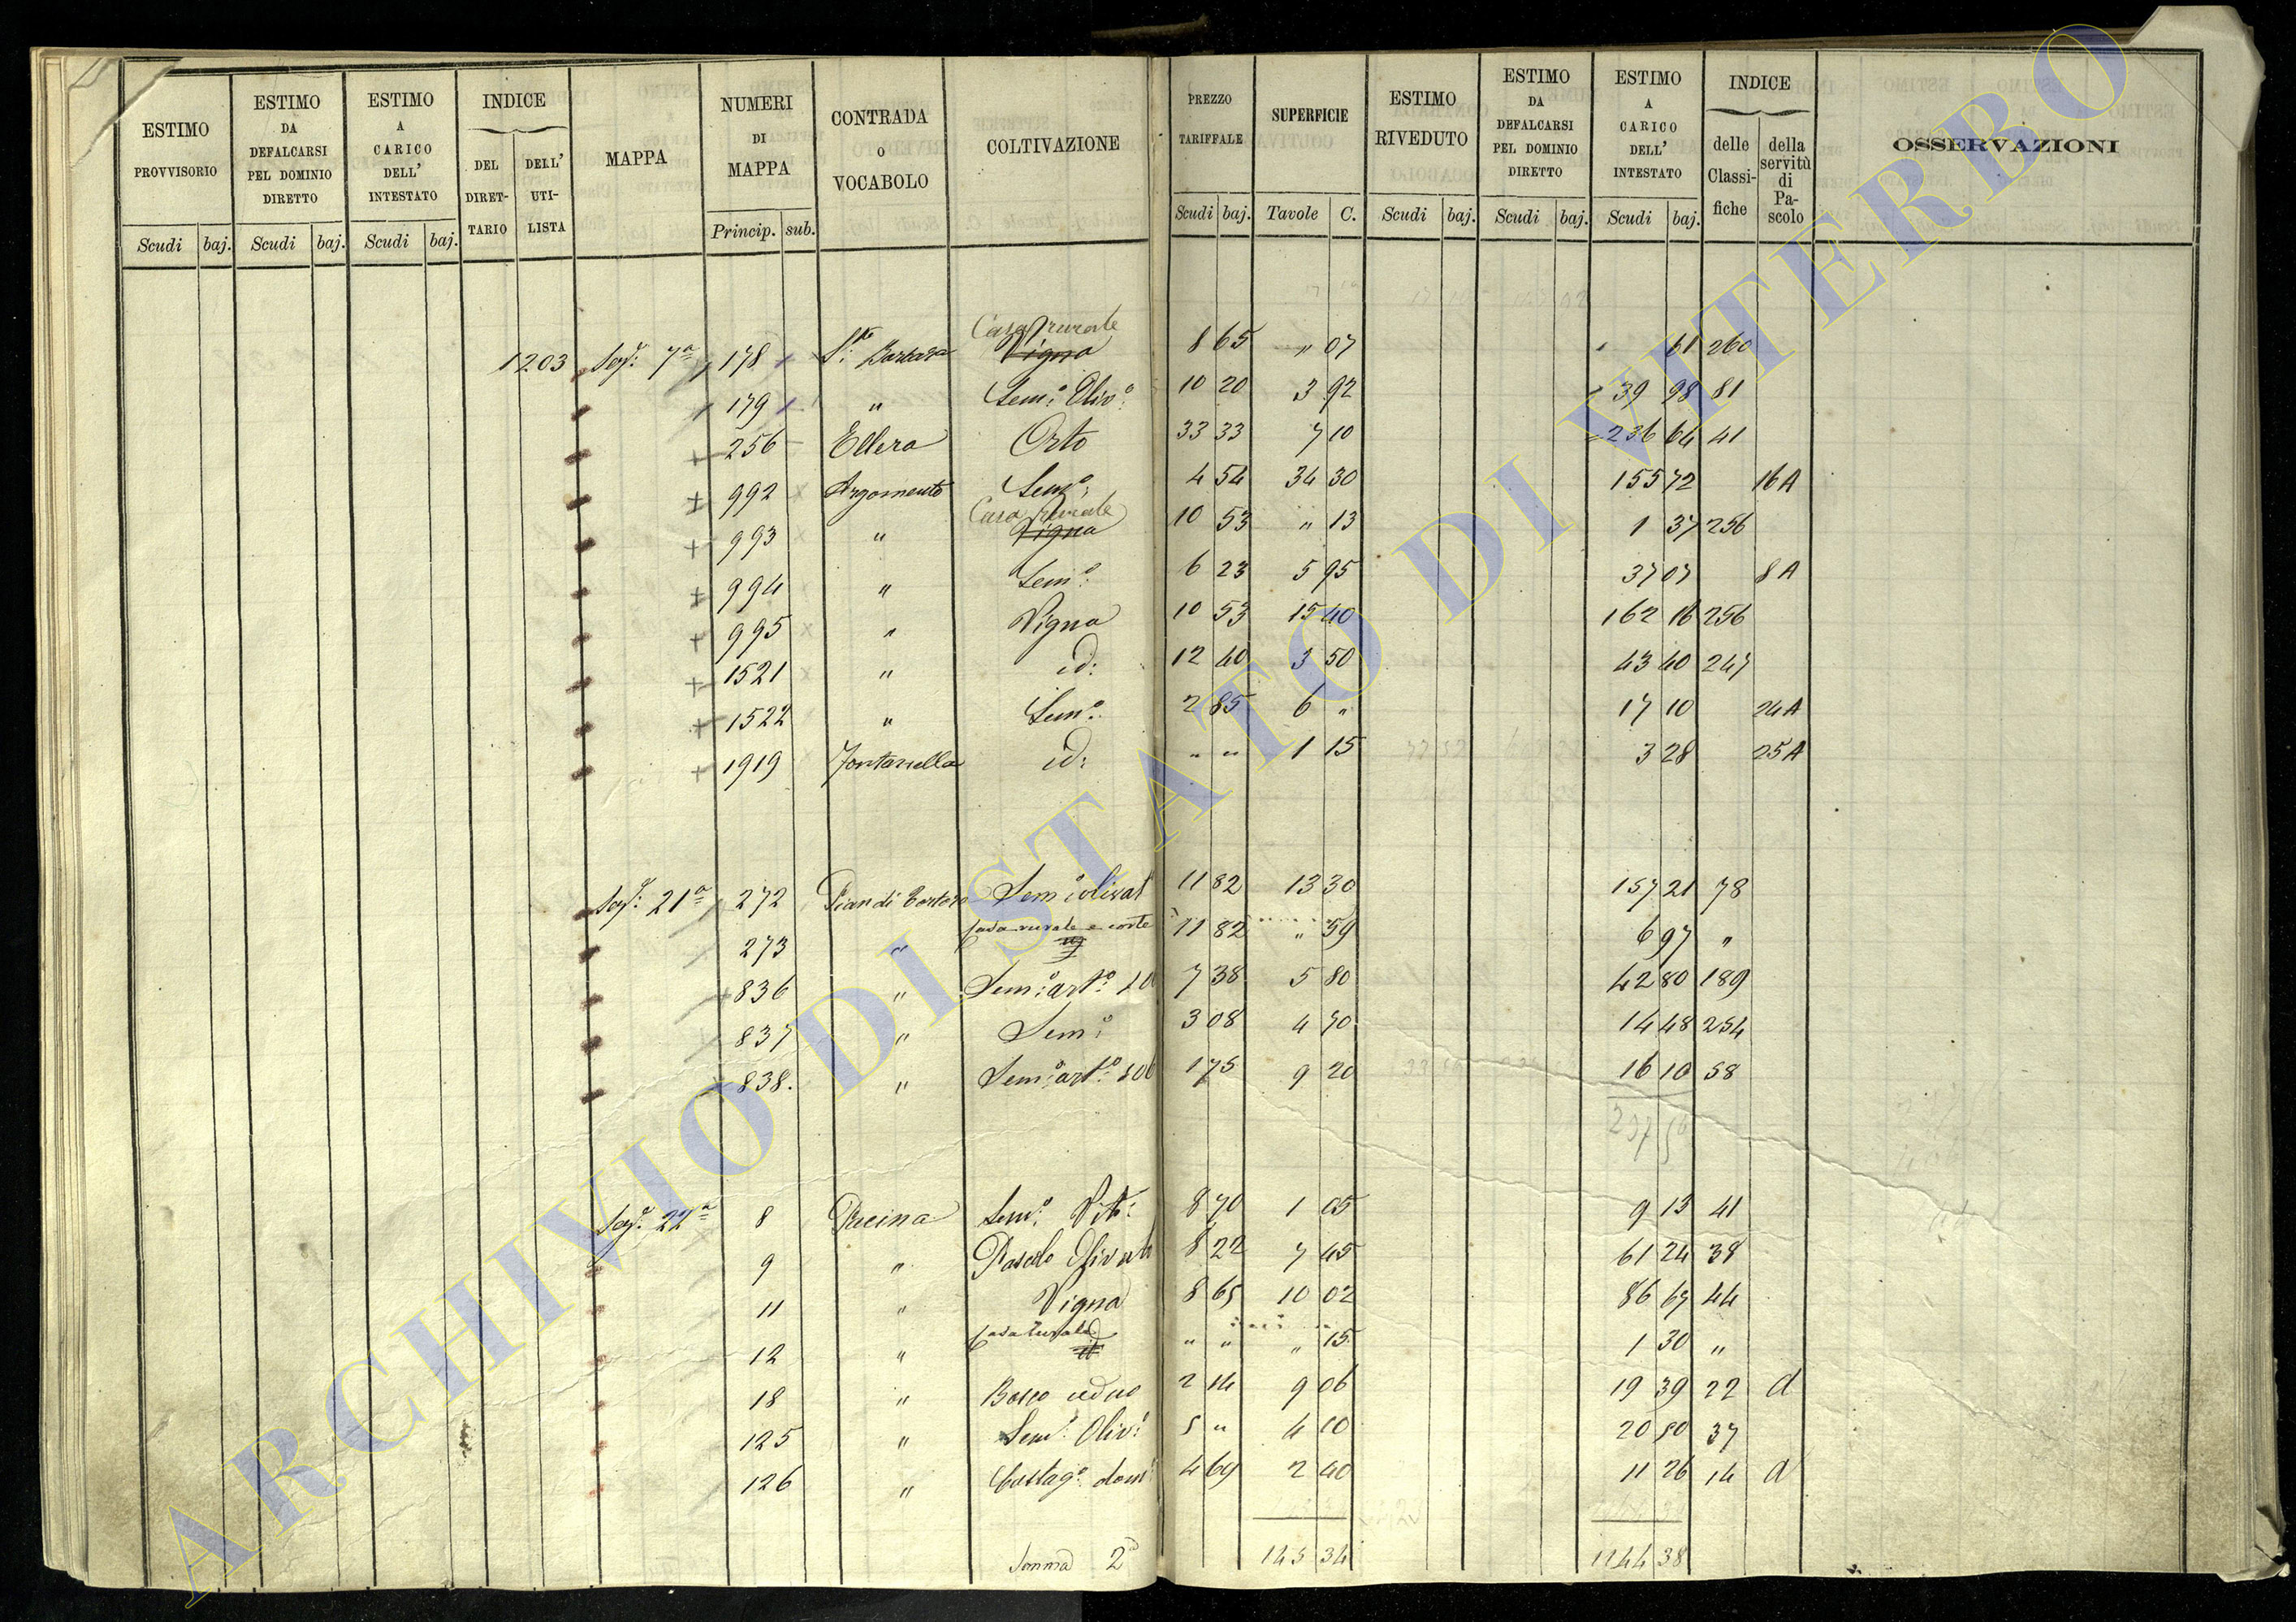 ESTIMO PROVVISORIO Scudi baj. | ESTIMO DA DEFALCARSI PEL DOMINIO DIRETTO Scudi baj. | ESTIMO A CARICO DELL' INTESTATO Scudi baj. | INDICE DEL DIRETTARIO DELL' UTILISTA | MAPPA | NUMERI DI MAPPA Princip. sub. | CONTRADA O VOCABOLO | COLTIVAZIONE | PREZZO TARIFFALE Scudi baj. | SUPERFICIE Tavole C. | ESTIMO RIVEDUTO Scudi baj. | ESTIMO DA DEFALCARSI PEL DOMINIO DIRETTO Scudi baj. | ESTIMO A CARICO DELL' INTESTATO Scudi baj. | INDICE delle Classifiche della servitù di Pascolo | OSSERVAZIONI
Casa rurale
1203 7a 178 Sta Barbara Vigna 8 65 " 07 61 260
179 " Semo: Olivo: 10 20 3 92 39 98 81
+ 256 Ellera Orto 33 33 7 10 236 64 41
+ 992 Argomento Semo: 4 54 34 30 155 72 16 A
Casa rurale
+ 993 " Vigna 10 53 " 13 1 37 256
+ 994 " Semo: 6 23 5 95 37 07 8 A
+ 995 " Vigna 10 53 15 40 162 16 256
+ 1521 " id: 12 40 3 50 43 40 247
+ 1522 " Semo: 2 85 6 " 17 10 24 A
+ 1919 Fontanella id: " " 1 15 3 28 25 A
21a 272 Pian di Semo olivat 11 82 13 30 157 21 78
Casa rurale e corte
273 " id 11 82 " 59 6 97 "
836 " Semo: arto: 7 38 5 80 42 80 189
837 " Semo: 3 08 4 70 14 48 254
838. " Semo: arto: 1 75 9 20 16 10 58
237 56
22a 8 Semo: Vito: 8 70 1 05 9 13 41
9 " Pascolo Olivato 8 22 7 45 61 24 38
11 " Vigna 8 65 10 02 86 67 44
Casa rurale
12 " id " " " 15 1 30 "
18 " Bosco ceduo 2 14 9 06 19 39 22 d
125 " Semo: Olivo: 5 " 4 10 20 50 37
126 " Castago: dom 4 69 2 40 11 26 14 d
Somma 2a 145 34 1144 38
ARCHIVIO DI STATO DI VITERBO